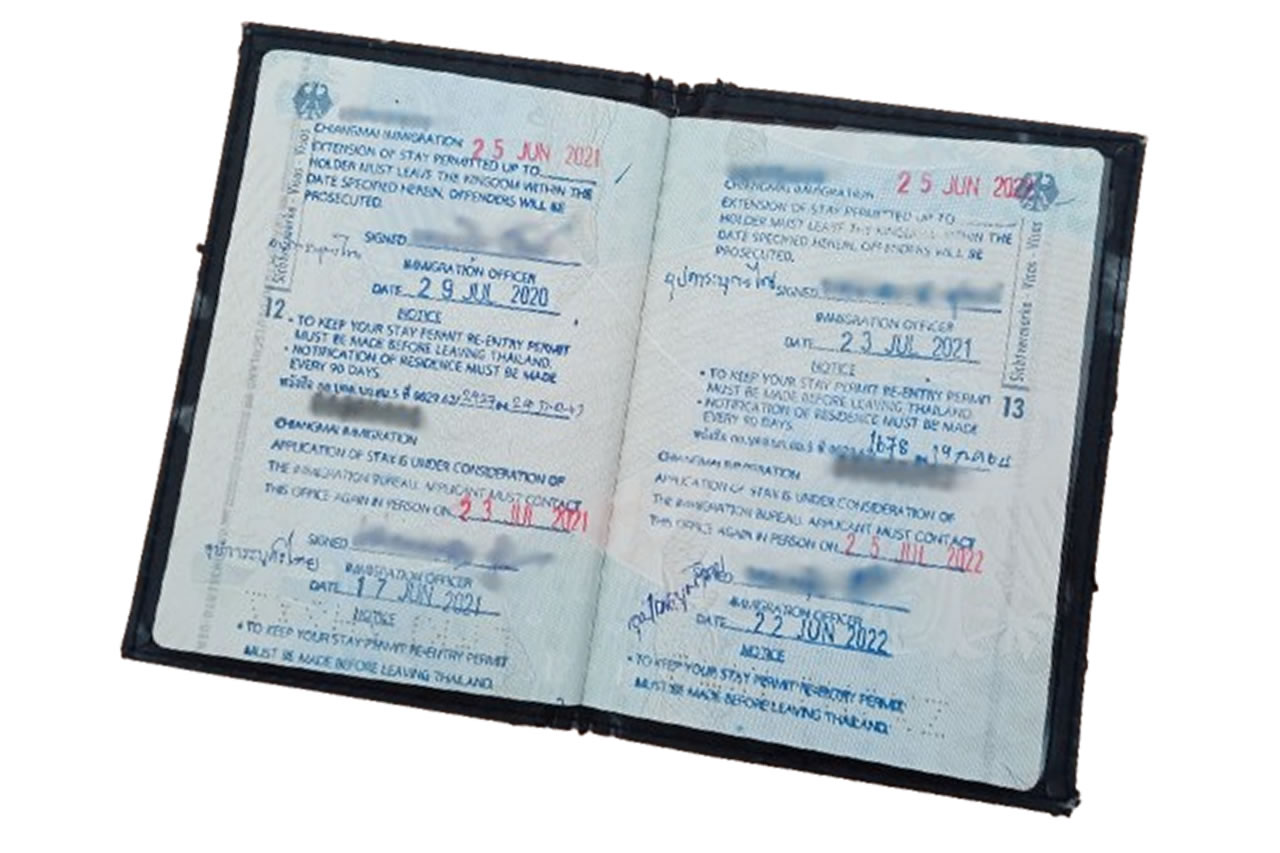 CHIANGMAI IMMIGRATION
25 JUN 2021
EXTENSION OF STAY PERMITTED UP TO
HOLDER MUST LEAVE THE KINGDOM WITHIN THE
DATE SPECIFIED HEREIN, OFFENDERS WILL BE
PROSECUTED.
SIGNED
IMMIGRATION OFFICER
DATE 29 JUL 2020
NOTICE
• TO KEEP YOUR STAY PERMIT RE-ENTRY PERMIT
MUST BE MADE BEFORE LEAVING THAILAND.
• NOTIFICATION OF RESIDENCE MUST BE MADE
EVERY 90 DAYS.
หนังสือ
CHIANGMAI IMMIGRATION
APPLICATION OF STAY IS UNDER CONSIDERATION OF
THE IMMIGRATION BUREAU. APPLICANT MUST CONTACT
THIS OFFICE AGAIN IN PERSON ON 23 JUL 2021
SIGNED
IMMIGRATION OFFICER
DATE 17 JUN 2021
NOTICE
• TO KEEP YOUR STAY PERMIT RE-ENTRY PERMIT
MUST BE MADE BEFORE LEAVING THAILAND.
Sichtvermerke - Visas - Visos
12
CHIANGMAI IMMIGRATION
25 JUN 2022
EXTENSION OF STAY PERMITTED UP TO
HOLDER MUST LEAVE THE KINGDOM WITHIN THE
DATE SPECIFIED HEREIN, OFFENDERS WILL BE
PROSECUTED.
SIGNED
IMMIGRATION OFFICER
DATE 23 JUL 2021
NOTICE
• TO KEEP YOUR STAY PERMIT RE-ENTRY PERMIT
MUST BE MADE BEFORE LEAVING THAILAND.
• NOTIFICATION OF RESIDENCE MUST BE MADE
EVERY 90 DAYS.
หนังสือ 1678
CHIANGMAI IMMIGRATION
APPLICATION OF STAY IS UNDER CONSIDERATION OF
THE IMMIGRATION BUREAU. APPLICANT MUST CONTACT
THIS OFFICE AGAIN IN PERSON ON 25 JUL 2022
SIGNED
IMMIGRATION OFFICER
DATE 22 JUN 2022
NOTICE
• TO KEEP YOUR STAY PERMIT RE-ENTRY PERMIT
MUST BE MADE BEFORE LEAVING THAILAND.
Sichtvermerke - Visas - Visos
13